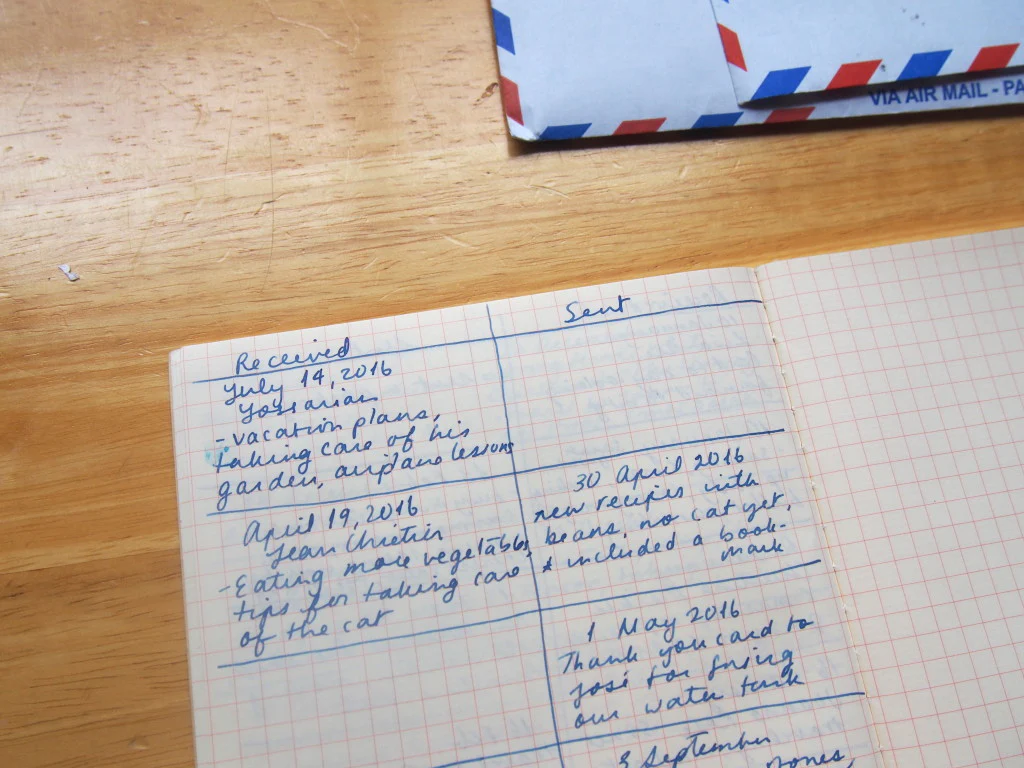 VIA AIR MAIL - PA
Received
Sent
July 14, 2016
Yossarian
- vacation plans,
taking care of his
garden, airplane lessons
April 19, 2016
Jean Chrétien
- Eating more vegetables,
tips for taking care
of the cat
30 April 2016
new recipes with
beans, no cat yet,
* included a book-
mark
1 May 2016
Thank you card to
José for fixing
our water tank
September